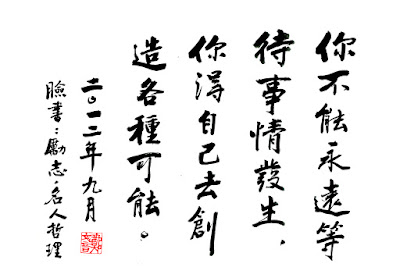 你不能永遠等
待事情發生，
你得自己去創
造各種可能。
二〇一二年九月
臉書：勵志·名人哲理